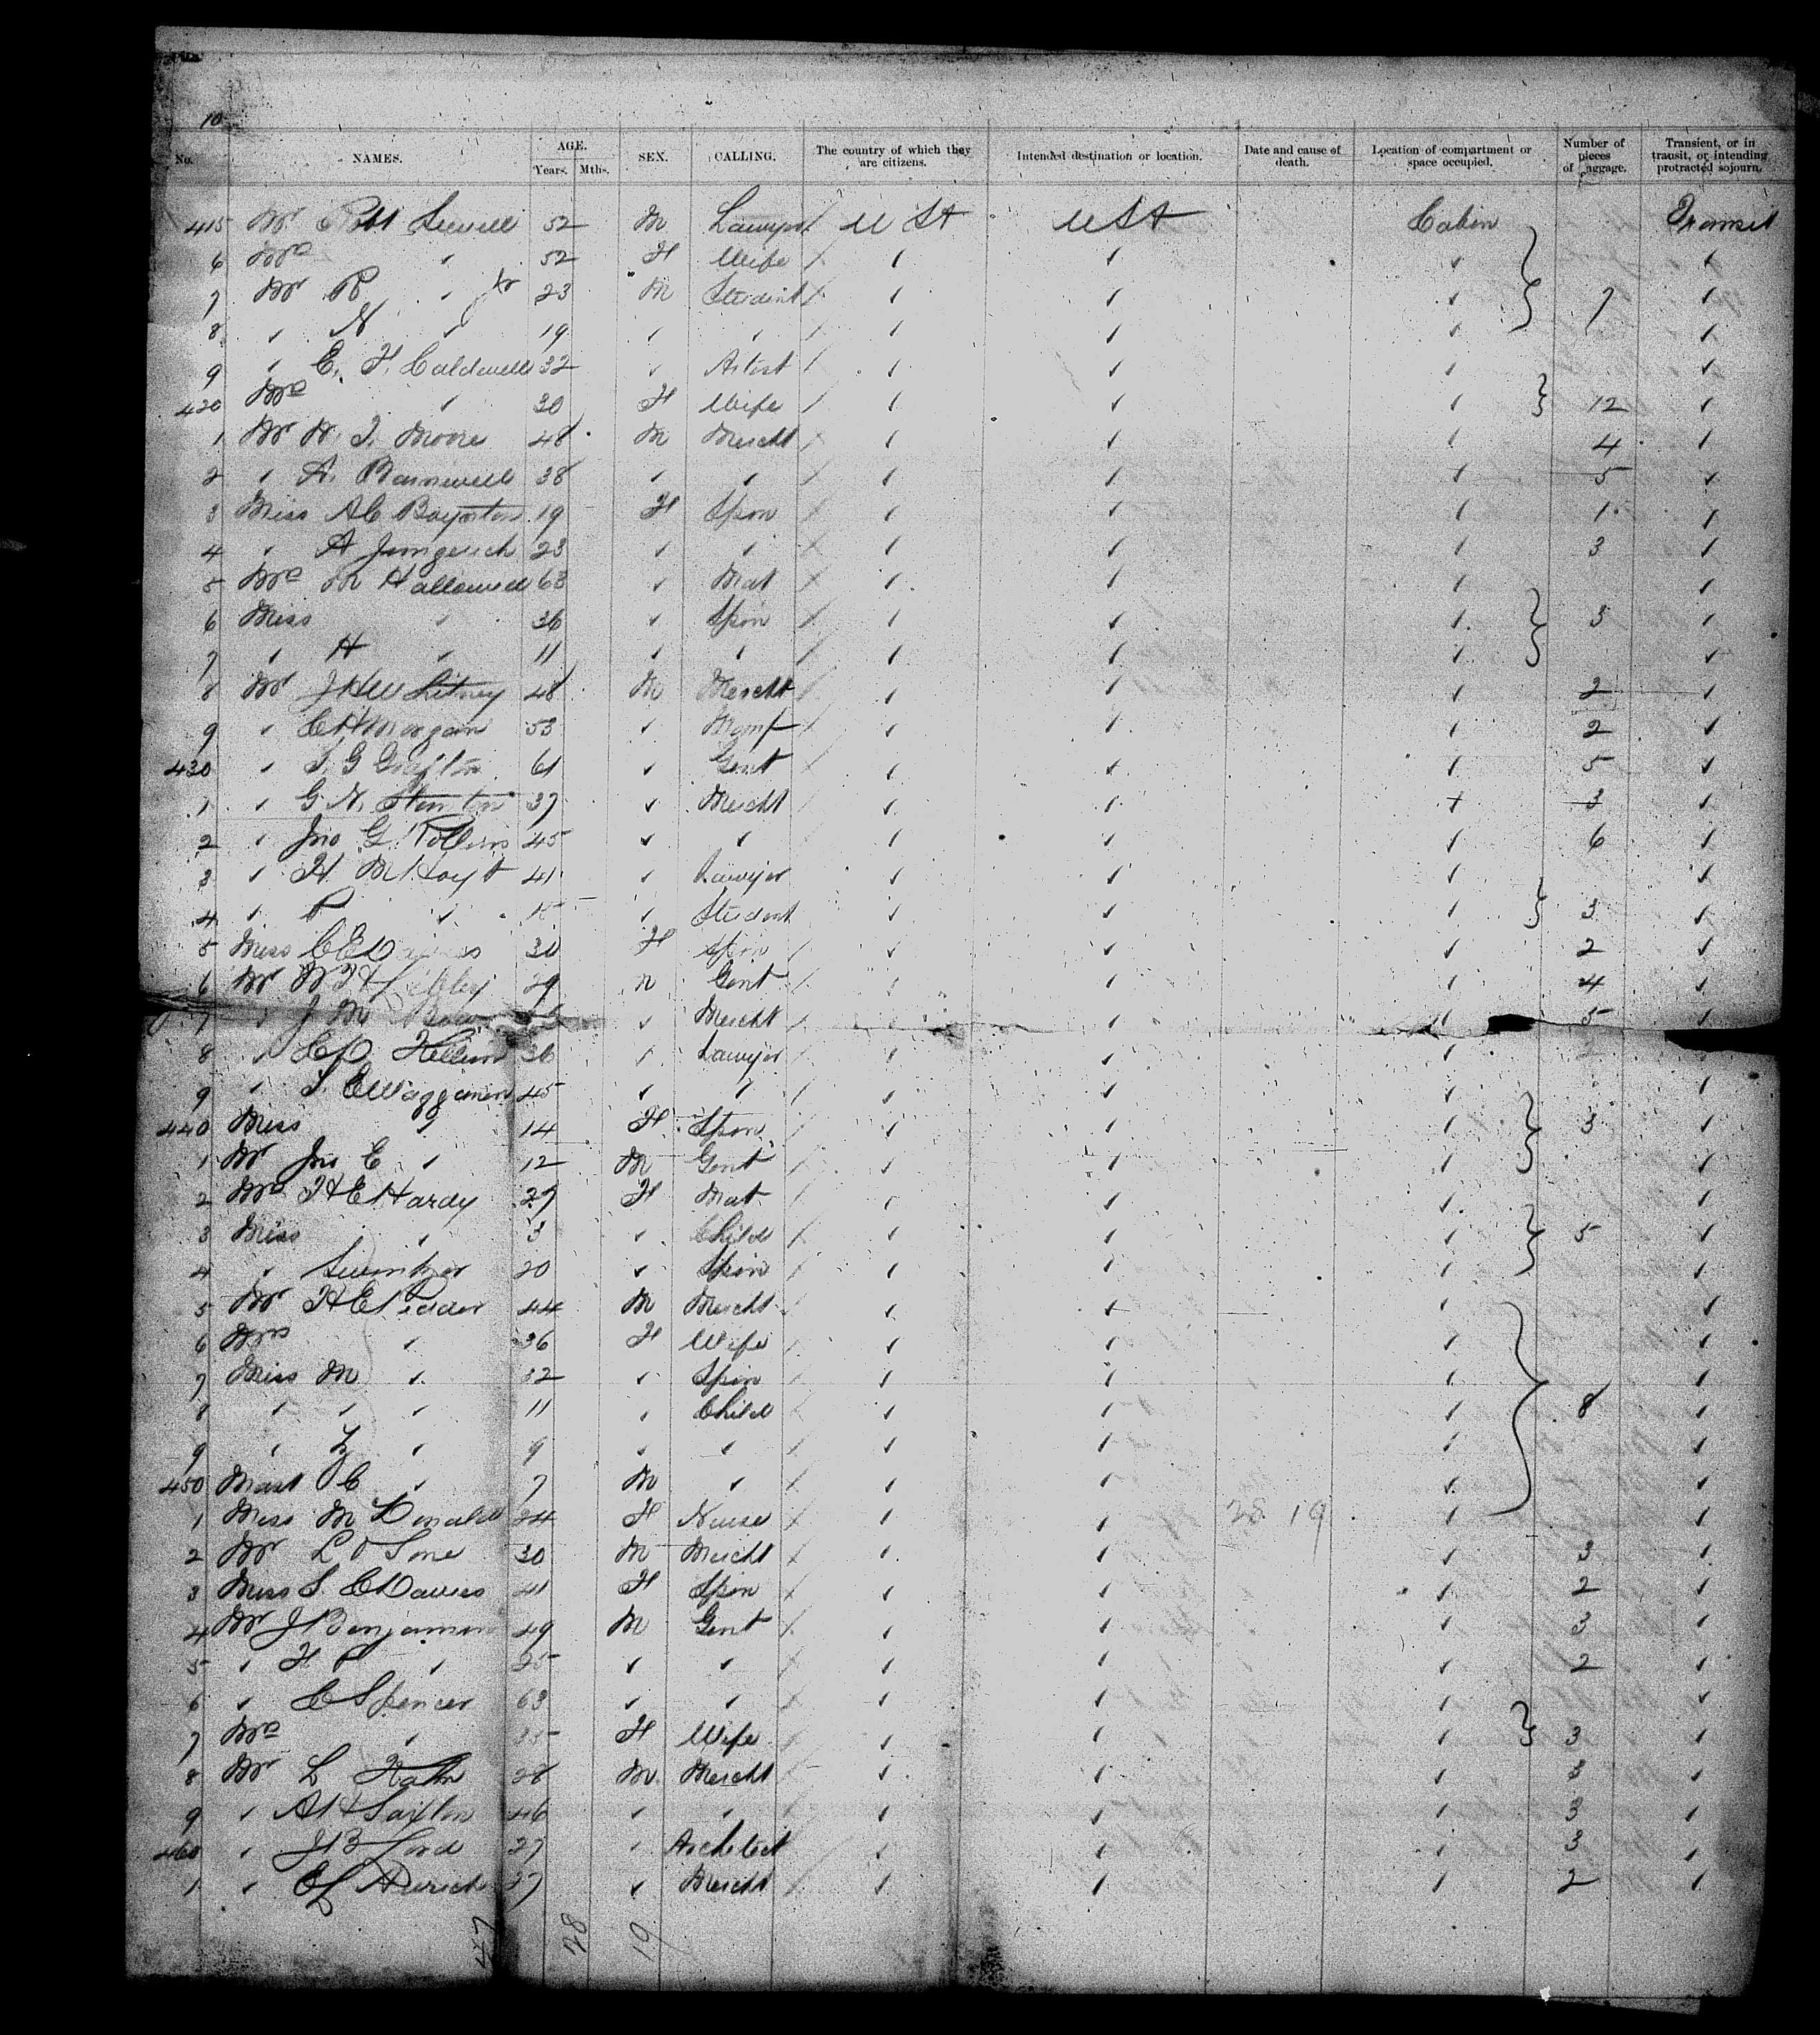 10
No. NAMES. AGE. Years. Mths. SEX. CALLING. The country of which they are citizens. Intended destination or location. Date and cause of death. Location of compartment or space occupied. Number of pieces of baggage. Transient, or in transit, or intending protracted sojourn.
415 Mr Robt Sewell 52 M Lawyer / U St U St Cabin Transit
6 Mrs ✓ 52 F Wife / ✓ ✓ ✓ ✓
7 Mr R ✓ Jr 23 M Student / ✓ ✓ ✓ 7 ✓
8 ✓ N ✓ 19 ✓ ✓ / ✓ ✓ ✓ ✓
9 ✓ E. F. Caldwell 32 ✓ Artist / ✓ ✓ ✓ ✓
420 Mrs ✓ 30 F Wife / ✓ ✓ ✓ 12 ✓
1 Mr Moore 48 M Mercht / ✓ ✓ ✓ 4 ✓
2 ✓ A. Barnwell 38 ✓ ✓ / ✓ ✓ ✓ 5 ✓
3 Miss A C Boynton 19 F Spin / ✓ ✓ ✓ 1 ✓
4 ✓ A Jungerich 23 ✓ ✓ / ✓ ✓ ✓ 3 ✓
5 Mrs M Hallowell 63 ✓ Mat / ✓ ✓ ✓ ✓
6 Miss ✓ 36 ✓ Spin / ✓ ✓ ✓ 3 ✓
7 ✓ H ✓ 11 ✓ ✓ / ✓ ✓ ✓ ✓
8 Mr J H Whitney 48 M Mercht / ✓ ✓ ✓ 2 ✓
9 ✓ C H Morgan 53 ✓ Manf / ✓ ✓ ✓ 2 ✓
430 ✓ 61 ✓ Gent / ✓ ✓ ✓ 5 ✓
1 ✓ G. N. Stanton 37 ✓ Mercht ✓ ✓ ✓ 3 ✓
2 ✓ Jno G. Rollins 45 ✓ ✓ ✓ ✓ ✓ 6 ✓
3 ✓ H. M. Hoyt 41 ✓ Lawyer ✓ ✓ ✓ ✓
4 ✓ R ✓ 15 ✓ Student ✓ ✓ ✓ 3 ✓
5 Miss C E 30 F Spin / ✓ ✓ ✓ 2 ✓
6 Mr 29 M Gent / ✓ ✓ ✓ 4 ✓
7 ✓ J M ✓ Mercht / ✓ ✓ ✓ 5 ✓
8 ✓ 36 ✓ Lawyer / ✓ ✓ ✓
9 ✓ S. E Waggaman 45 ✓ ✓ / ✓ ✓ ✓ ✓
440 Miss ✓ 14 F Spin / ✓ ✓ ✓ 3 ✓
1 Mr Jno E ✓ 12 M Gent / ✓ ✓ ✓ ✓
2 Mrs H E Hardy 27 F Mat / ✓ ✓ ✓ ✓
3 Miss ✓ 3 ✓ Child / ✓ ✓ ✓ 5 ✓
4 ✓ Switzer 20 ✓ Spin / ✓ ✓ ✓ ✓
5 Mr H E 44 M Mercht / ✓ ✓ ✓ ✓
6 Mrs ✓ 36 F Wife / ✓ ✓ ✓ ✓
7 Miss M ✓ 32 ✓ Spin / ✓ ✓ ✓ ✓
8 ✓ ✓ ✓ 11 ✓ Child / ✓ ✓ ✓ 8 ✓
9 ✓ L ✓ 9 ✓ ✓ / ✓ ✓ ✓ ✓
450 Mast C ✓ 7 M ✓ / ✓ ✓ ✓ ✓
1 Miss McDonald 24 F Nurse / ✓ ✓ 28 19 ✓ ✓
2 Mr L V Sone 30 M Mercht / ✓ ✓ ✓ 3 ✓
3 Miss S. C Davies 41 F Spin / ✓ ✓ ✓ 2 ✓
4 Mr J Benjamin 49 M Gent / ✓ ✓ ✓ 3 ✓
5 ✓ H P ✓ 25 ✓ ✓ / ✓ ✓ ✓ 2 ✓
6 ✓ C Spencer 63 ✓ ✓ / ✓ ✓ ✓ ✓
7 Mrs ✓ 35 F Wife / ✓ ✓ ✓ 3 ✓
8 Mr L Kahn 28 M Mercht / ✓ ✓ ✓ 3 ✓
9 ✓ A H 46 ✓ ✓ / ✓ ✓ ✓ 3 ✓
460 ✓ J B Lord 27 ✓ Architect / ✓ ✓ ✓ 3 ✓
1 ✓ 37 ✓ Mercht / ✓ ✓ ✓ 2 ✓
47 28 19